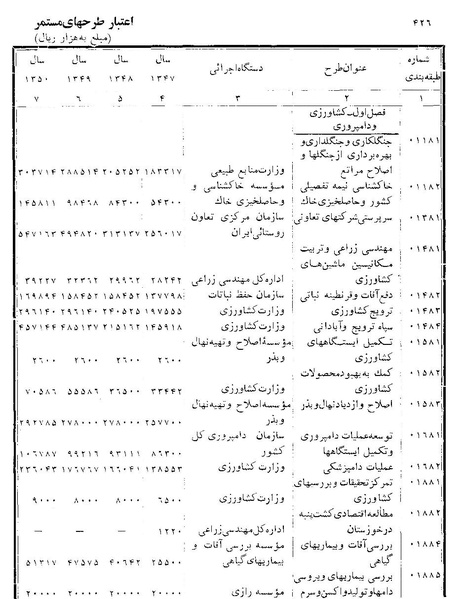 ۴۲۶
اعتبار طرحهای مستمر
(مبلغ به هزار ریال)
شماره طبقه‌بندی عنوان طرح دستگاه اجرائی سال ۱۳۴۷ سال ۱۳۴۸ سال ۱۳۴۹ سال ۱۳۵۰
۱ ۲ ۳ ۴ ۵ ۶ ۷
فصل اول ـ کشاورزی
ودامپروری
۰۱۱۸۱ جنگلکاری و جنگلداری و
بهره‌برداری از جنگلها و
اصلاح مراتع وزارت منابع طبیعی ۱۸۳۳۱۷ ۲۰۵۲۵۲ ۲۸۸۵۱۴ ۳۰۳۷۱۴
۰۱۱۸۲ خاکشناسی نیمه تفصیلی مؤسسه خاکشناسی و
کشور و حاصلخیزی خاك حاصلخیزی خاك ۵۴۳۰۰ ۸۴۳۰۰ ۹۸۴۶۸ ۱۴۵۸۱۱
۰۱۳۸۱ سرپرستی شرکتهای تعاونی سازمان مرکزی تعاون
روستائی ایران ۲۵۶۰۱۷ ۳۱۳۱۳۷ ۴۹۴۸۲۰ ۵۴۷۱۶۳
۰۱۴۸۱ مهندسی زراعی و تربیت
مکانیسین ماشین‌های
کشاورزی اداره کل مهندسی زراعی ۲۸۲۴۲ ۲۹۹۶۲ ۳۲۳۶۲ ۳۹۲۲۷
۰۱۴۸۲ دفع آفات و قرنطینه نباتی سازمان حفظ نباتات ۱۳۷۷۹۸ ۱۵۸۴۵۲ ۱۵۸۴۵۲ ۱۶۹۸۹۴
۰۱۴۸۳ ترویج کشاورزی وزارت کشاورزی ۱۹۷۵۵۵ ۲۴۰۵۲۵ ۲۹۶۱۴۰ ۲۹۶۱۴۰
۰۱۴۸۴ سپاه ترویج و آبادانی وزارت کشاورزی ۱۴۵۹۱۸ ۲۱۵۱۶۲ ۴۸۵۱۳۷ ۴۵۷۱۴۴
۰۱۵۸۱ تکمیل ایستگاههای مؤسسهٔ اصلاح و تهیه نهال
کشاورزی وبذر ۲۶۰۰ ۲۶۰۰ ۲۶۰۰ ۲۶۰۰
۰۱۵۸۲ کمك به بهبود محصولات
کشاورزی وزارت کشاورزی ۳۳۴۴۲ ۳۶۵۰۰ ۵۵۵۸۶ ۷۰۵۸۶
۰۱۵۸۳ اصلاح وازدیاد نهال و بذر مؤسسه اصلاح و تهیه نهال
وبذر ۲۵۷۷۰۰ ۲۷۸۰۰۰ ۲۷۸۰۰۰ ۲۹۲۷۸۵
۰۱۶۸۱ توسعه عملیات دامپروری سازمان دامپروری کل
وتکمیل ایستگاهها کشور ۸۶۳۰۰ ۹۳۱۱۱ ۹۹۲۱۶ ۱۰۶۷۸۷
۰۱۶۸۲ عملیات دامپزشکی وزارت کشاورزی ۱۳۸۵۵۳ ۱۶۶۰۴۱ ۱۷۶۷۶۷ ۲۳۶۰۴۳
۰۱۸۸۱ تمرکز تحقیقات و بررسیهای
کشاورزی وزارت کشاورزی ۶۵۰۰ ۸۰۰۰ ۸۰۰۰ ۹۰۰۰
۰۱۸۸۲ مطالعه اقتصادی کشت پنبه
در خوزستان اداره کل مهندسی زراعی ۱۲۲۰ — — —
۰۱۸۸۴ بررسی آفات و بیماریهای مؤسسه بررسی آفات و
گیاهی بیماریهای گیاهی ۲۵۵۰۰ ۴۰۶۴۲ ۴۷۵۷۵ ۵۱۳۱۷
۰۱۸۸۵ بررسی بیماریهای ویروسی
دامها و تولید واکسن و سرم مؤسسه رازی ۲۰۰۰۰ ۲۰۰۰۰ ۲۰۰۰۰ ۲۰۰۰۰